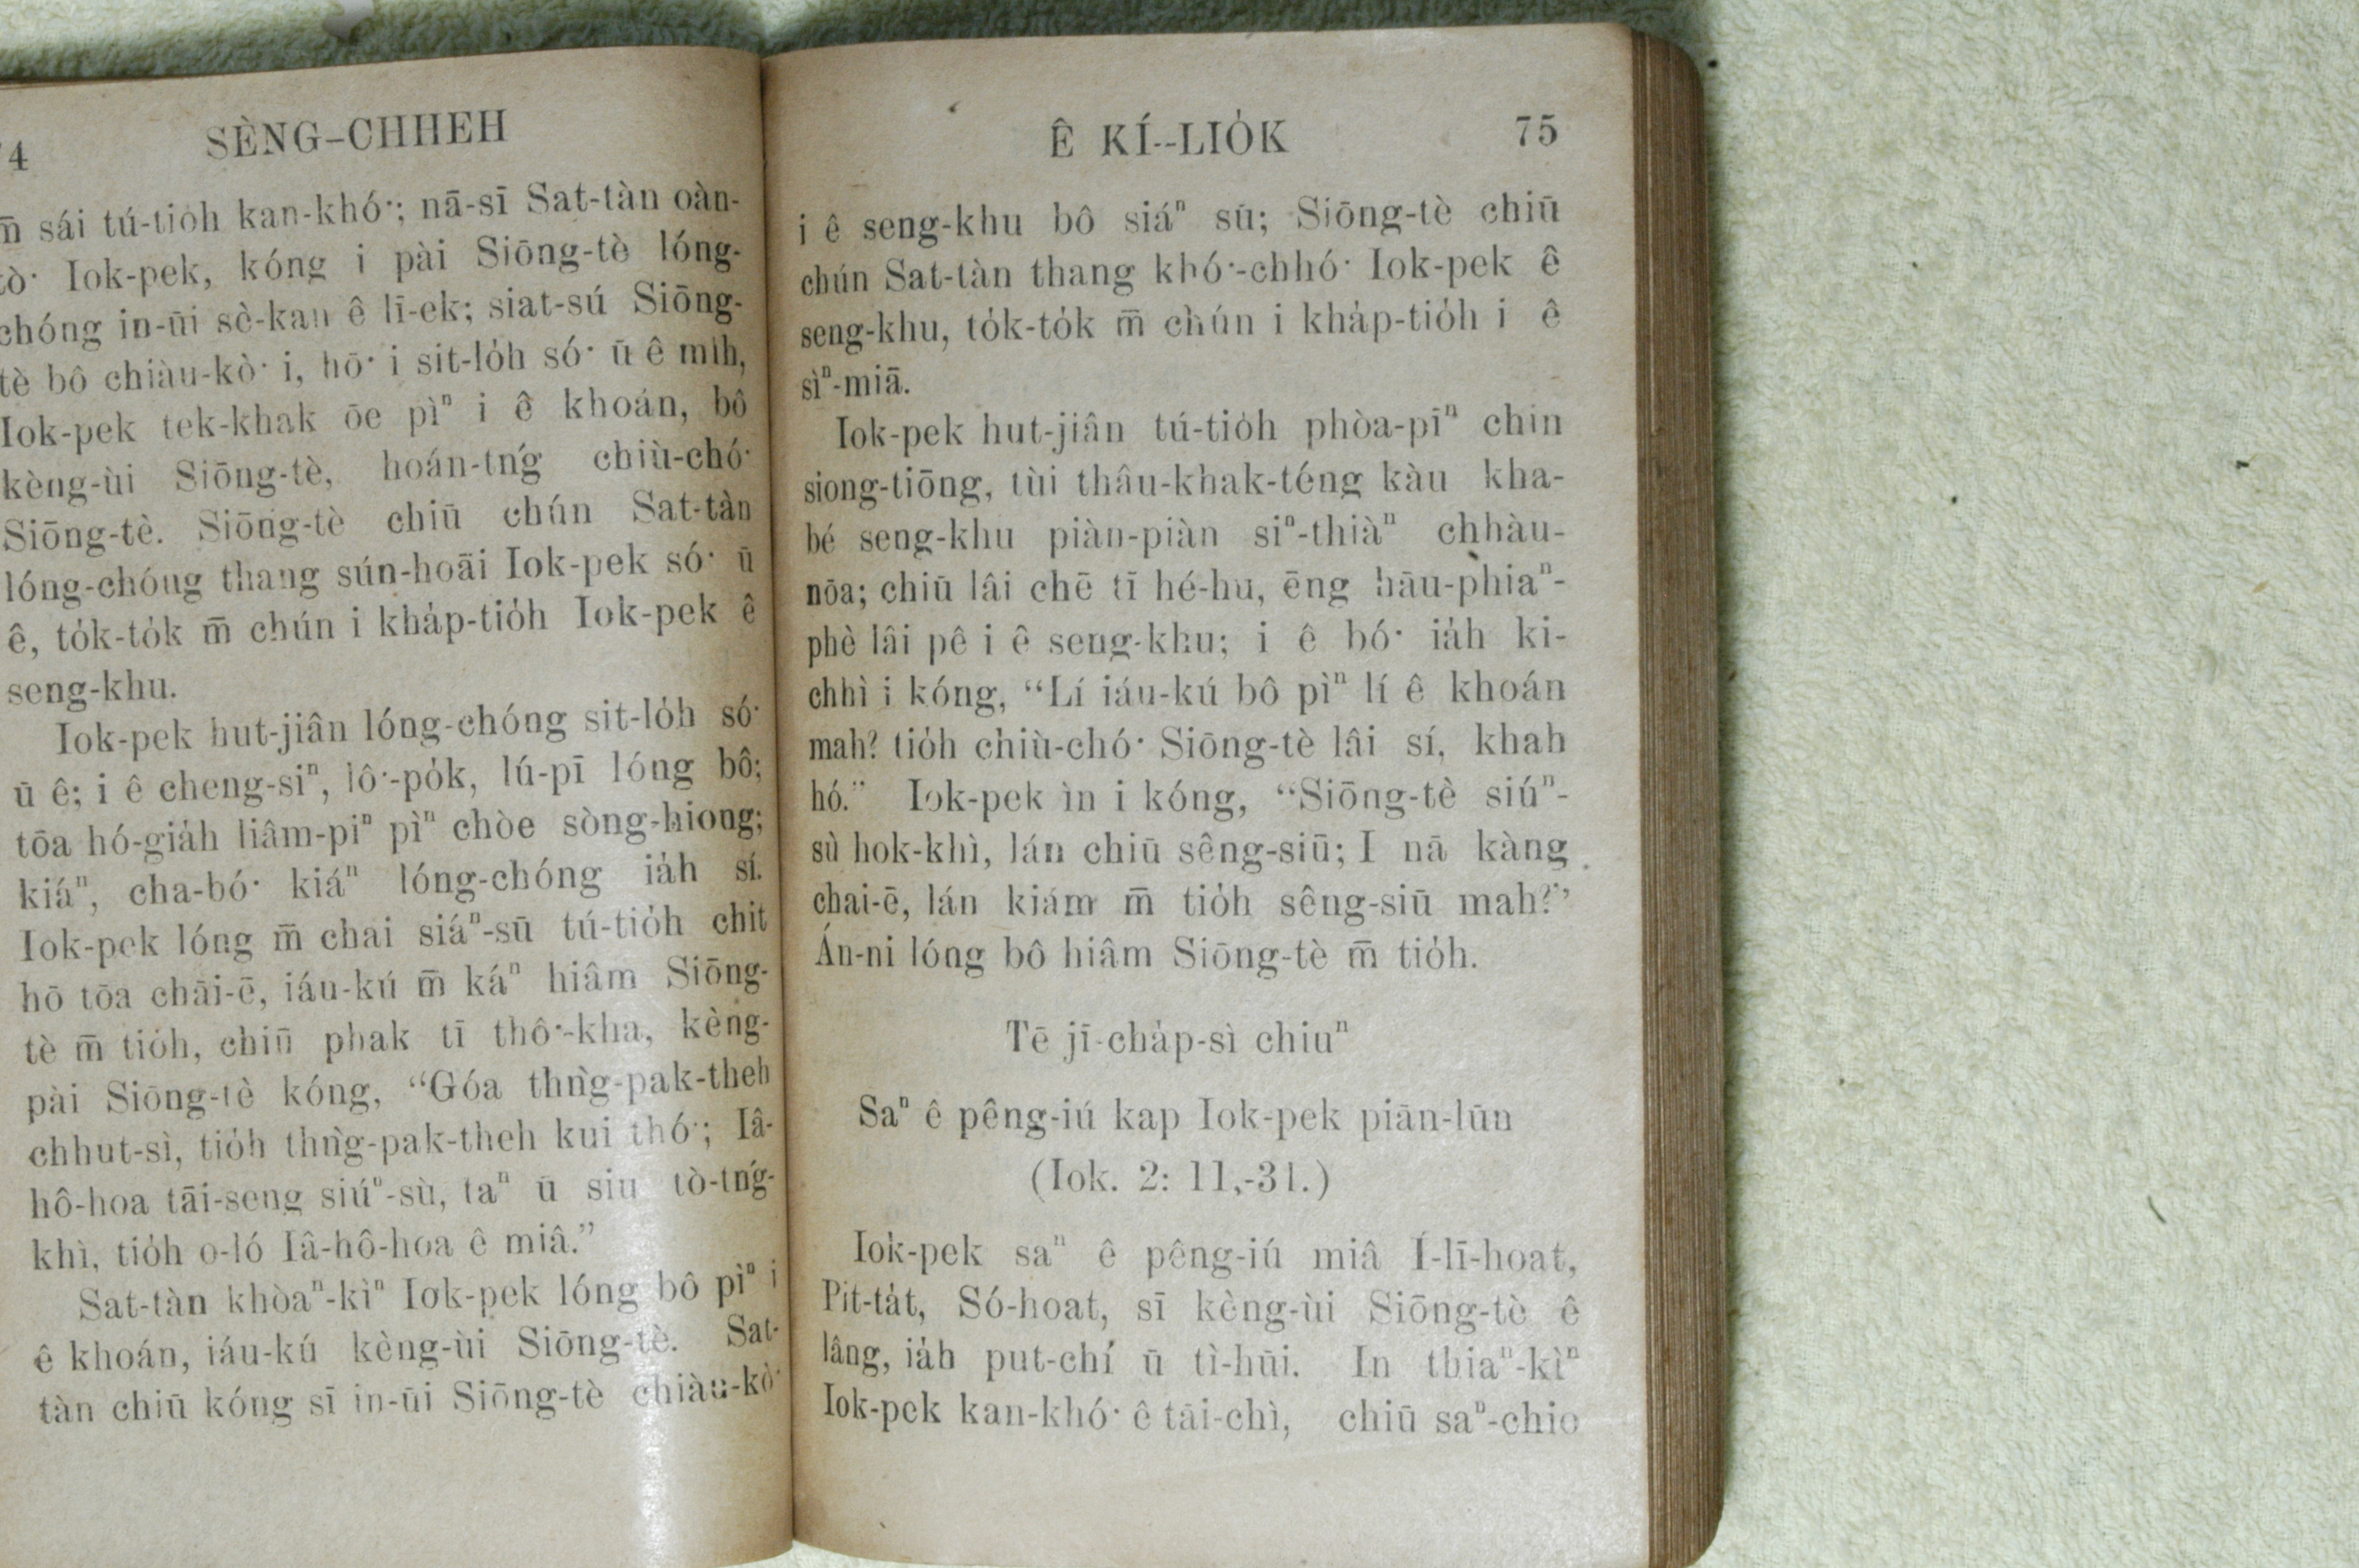 4 SÈNG-CHHEH
m̄ sái tú-tio̍h kan-khó͘; nā-sī Sat-tàn oàn-
tò͘ Iok-pek, kóng i pài Siōng-tè lóng-
chóng in-ūi sè-kan ê lī-ek; siat-sú Siōng-
tè bô chiàu-kò͘ i, hō͘ i sit-lo̍h só͘ ū ê mih,
Iok-pek tek-khak ōe pìⁿ i ê khoán, bô
kèng-ùi Siōng-tè, hoán-tńg chiù-chó͘
Siōng-tè. Siōng-tè chiū chún Sat-tàn
lóng-chóng thang sún-hoāi Iok-pek só͘ ū
ê, to̍k-to̍k m̄ chún i kha̍p-tio̍h Iok-pek ê
seng-khu.
Iok-pek hut-jiân lóng-chóng sit-lo̍h só͘
ū ê; i ê cheng-siⁿ, lô͘-po̍k, lú-pī lóng bô;
tōa hó-gia̍h liâm-piⁿ pìⁿ chòe sòng-hiong;
kiáⁿ, cha-bó͘ kiáⁿ lóng-chóng ia̍h sí.
Iok-pek lóng m̄ chai siáⁿ-sū tú-tio̍h chit
hō tōa chāi-ē, iáu-kú m̄ káⁿ hiâm Siōng-
tè m̄ tio̍h, chiū phak tī thô͘-kha, kèng-
pài Siōng-tè kóng, “Góa thǹg-pak-theh
chhut-sì, tio̍h thǹg-pak-theh kui thó͘; Iâ-
hô-hoa tāi-seng siúⁿ-sù, taⁿ ū siu tò-tńg-
khì, tio̍h o-ló Iâ-hô-hoa ê miâ.”
Sat-tàn khòaⁿ-kìⁿ Iok-pek lóng bô pìⁿ i
ê khoán, iáu-kú kèng-ùi Siōng-tè. Sat-
tàn chiū kóng sī in-ūi Siōng-tè chiàu-kò͘
Ê KÍ--LIO̍K 75
i ê seng-khu bô siáⁿ sū; Siōng-tè chiū
chún Sat-tàn thang khó͘-chhó͘ Iok-pek ê
seng-khu, to̍k-to̍k m̄ chún i kha̍p-tio̍h i ê
sìⁿ-miā.
Iok-pek hut-jiân tú-tio̍h phòa-pīⁿ chin
siong-tiōng, tùi thâu-khak-téng kàu kha-
bé seng-khu piàn-piàn siⁿ-thiàⁿ chhàu-
nōa; chiū lâi chē tī hé-hu, ēng hāu-phiaⁿ-
phè lâi pê i ê seng-khu; i ê bó͘ ia̍h ki-
chhì i kóng, “Lí iáu-kú bô pìⁿ lí ê khoán
mah? tio̍h chiù-chó͘ Siōng-tè lâi sí, khah
hó.” Iok-pek ìn i kóng, “Siōng-tè siúⁿ-
sù hok-khì, lán chiū sêng-siū; I nā kàng
chai-ē, lán kiám m̄ tio̍h sêng-siū mah?”
Án-ni lóng bô hiâm Siōng-tè m̄ tio̍h.
Tē jī-cha̍p-sì chiuⁿ
Saⁿ ê pêng-iú kap Iok-pek piān-lūn
(Iok. 2: 11,-31.)
Iok-pek saⁿ ê pêng-iú miâ Í-lī-hoat,
Pit-ta̍t, Só-hoat, sī kèng-ùi Siōng-tè ê
lâng, ia̍h put-chí ū tì-hūi. In thiaⁿ-kìⁿ
Iok-pek kan-khó͘ ê tāi-chì, chiū saⁿ-chio